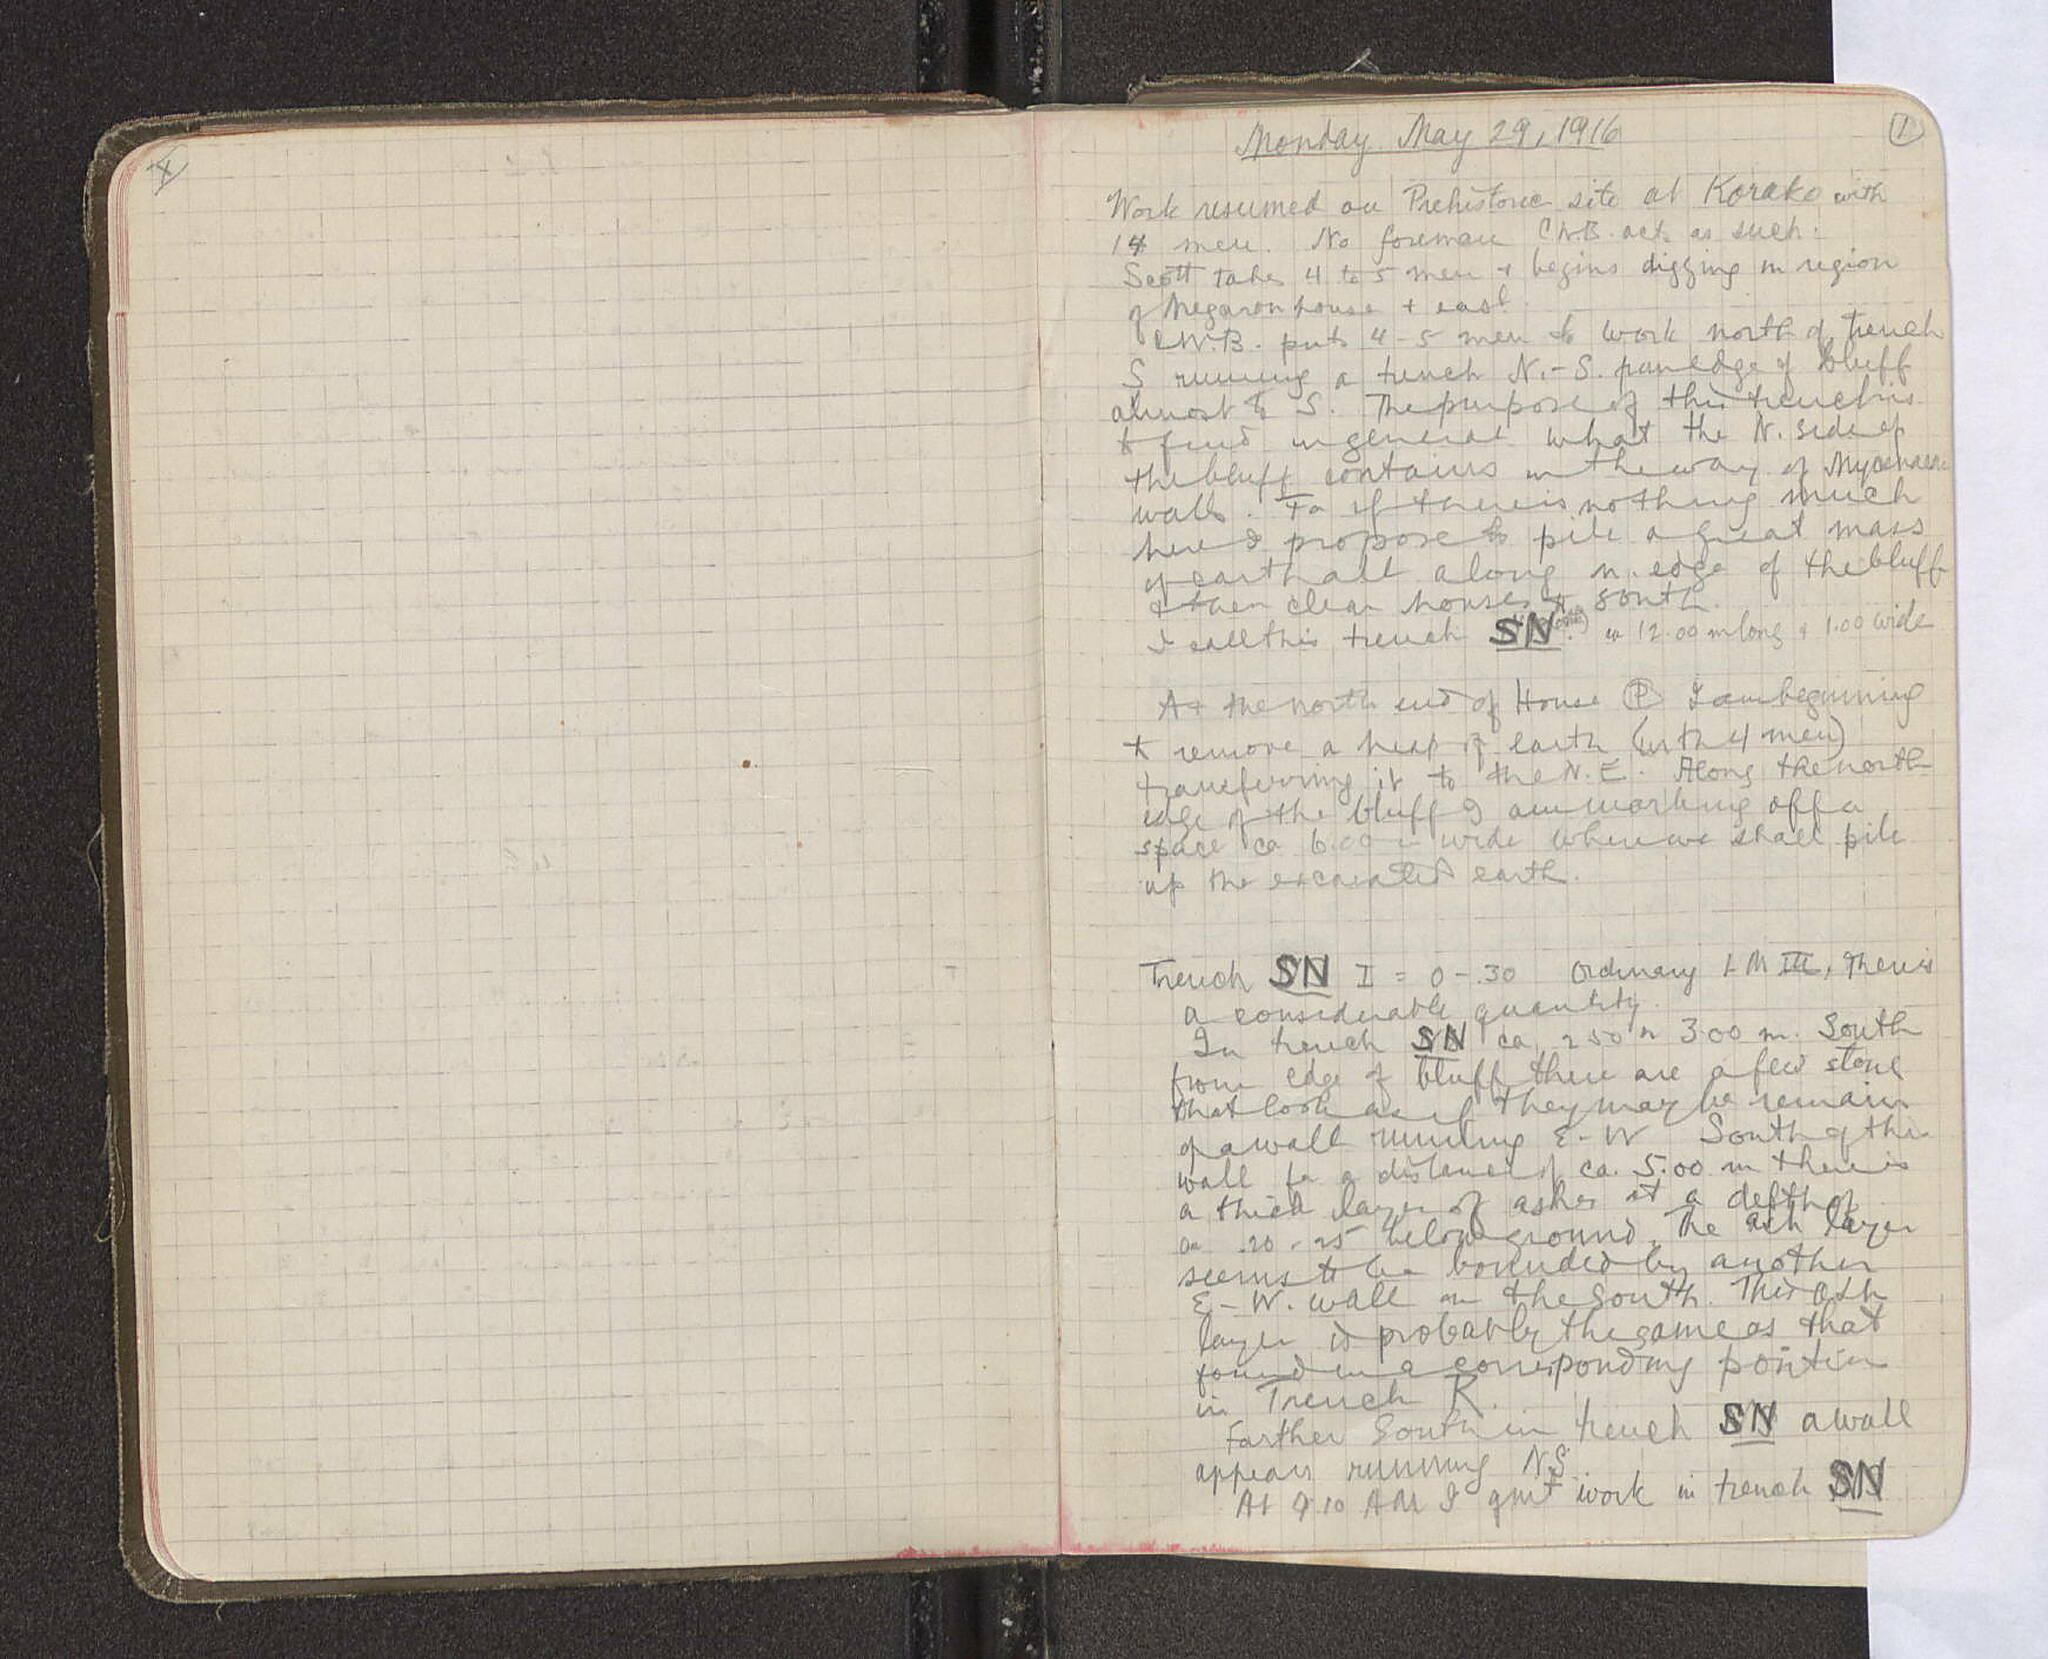 X
Monday May 29, 1916
1
Work resumed on Prehistoric site at Korako with
14 men. No foreman C.W.B. acts as such.
Scott takes 4 to 5 men + begins digging in region
of Megaron house + east
C.W.B. puts 4-5 men to work north of Trench
S running a trench N.-S. from edge of bluff
almost to S. The purpose of this trench is
to find in general what the N. side of
the bluff contains in the way of Mycenaean
walls. For if there is nothing much
here I propose to pile a great mass
of earth all along n. edge of the bluff
+ then clear houses to south.
I call this trench SN. 12.00 m long + 1.00 wide
At the north end of House P I am beginning
to remove a heap of earth (with 4 men)
transferring it to the N.E. Along the north
edge of the bluff I am marking off a
space ca 6.00 m wide where we shall pile
up the excavated earth.
Trench SN I = 0-.30 Ordinary LM III, there is
a considerable quantity.
In trench SN ca. 2.50 or 3.00 m. South
from edge of bluff there are a few stone
that look as if they may be remains
of a wall running E-W South of this
wall for a distance of ca. 5.00 m there is
a thick layer of ashes at a depth of
.20-.25 below ground. The ash layer
seems to be bounded by another
E-W. wall on the South. This ash
layer is probably the same as that
found in a corresponding position
in Trench R.
Farther South in trench SN a wall
appears running NS.
At 9.10 AM I quit work in trench SN